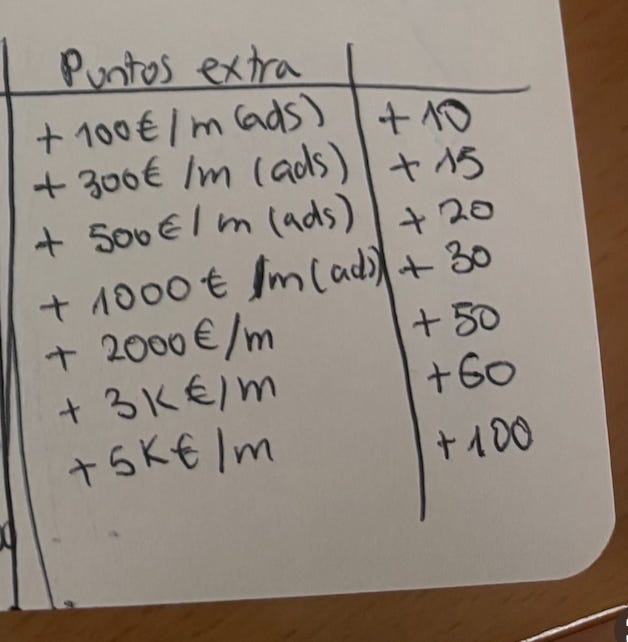 Puntos extra
+ 100€/m (ads) +10
+ 300€/m (ads) +15
+ 500€/m (ads) +20
+ 1000€/m (ads) +30
+ 2000€/m +50
+ 3K€/m +60
+ 5K€/m +100